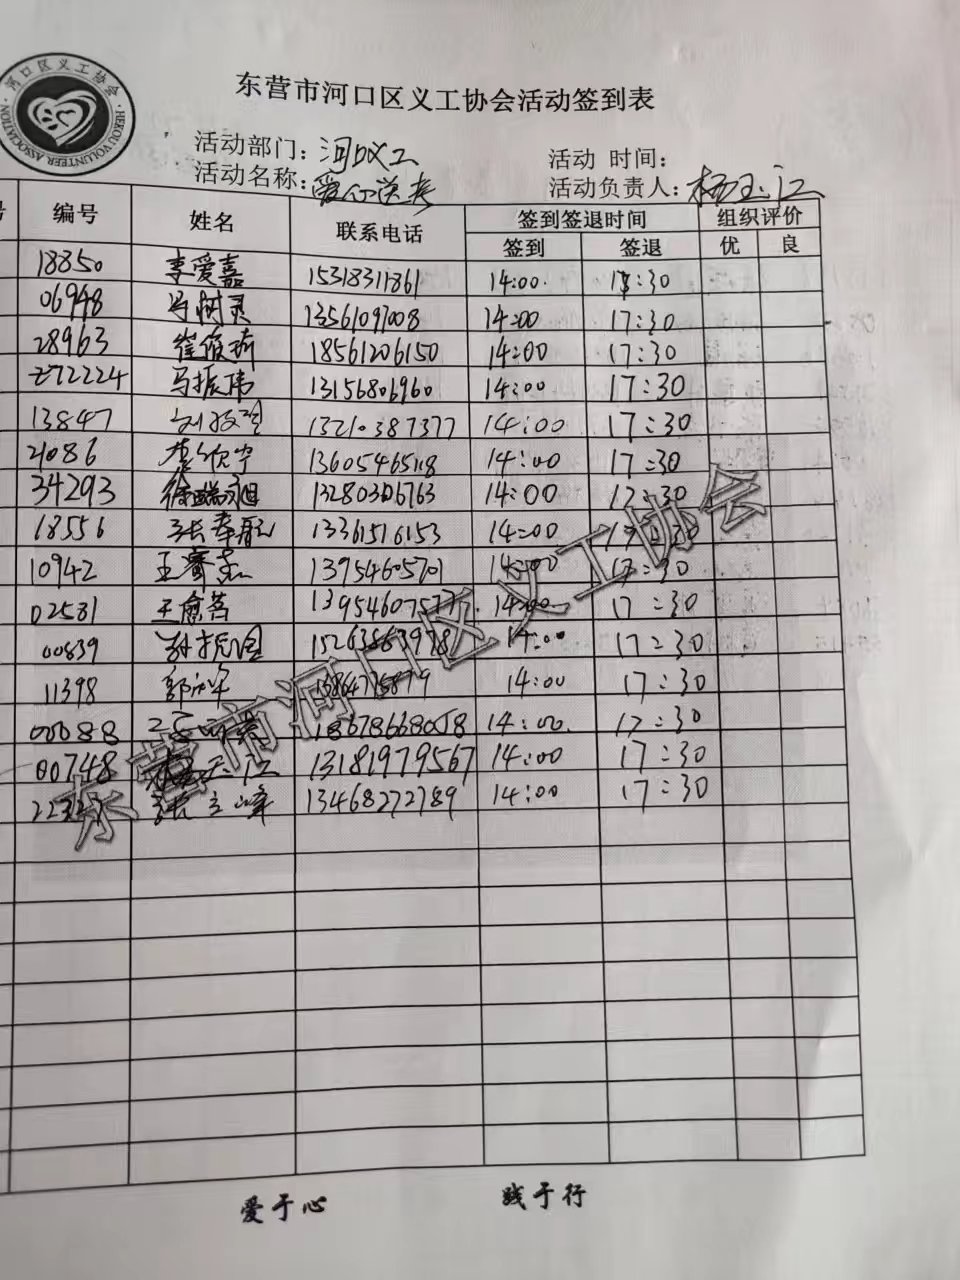 河口区义工协会
HEKOU VOLUNTEER ASSOCIATION
东营市河口区义工协会活动签到表
活动部门：河口义工 活动 时间：
活动名称：爱心送考 活动负责人：杨玉江
号 编号 姓名 联系电话 签到签退时间 组织评价
签到 签退 优 良
18850 李爱嘉 15318311861 14:00 17:30
06948 马树灵 13561097008 14:00 17:30
28963 崔俊新 18561206150 14:00 17:30
272224 马振伟 13156801960 14:00 17:30
13847 13210387377 14:00 17:30
21086 13605465118 14:00 17:30
34293 徐瑞旭 13280306763 14:00 17:30
18556 13361516153 14:00 17:30
10942 13954605701 14:00 17:30
02581 14:00 17:30
00839 孙振国 15263863978 14:00 17:30
11398 14:00 17:30
00088 18678668058 14:00 17:30
00748 杨玉江 13181979567 14:00 17:30
张立峰 13468272789 14:00 17:30
东营市河口区义工协会
爱于心 践于行